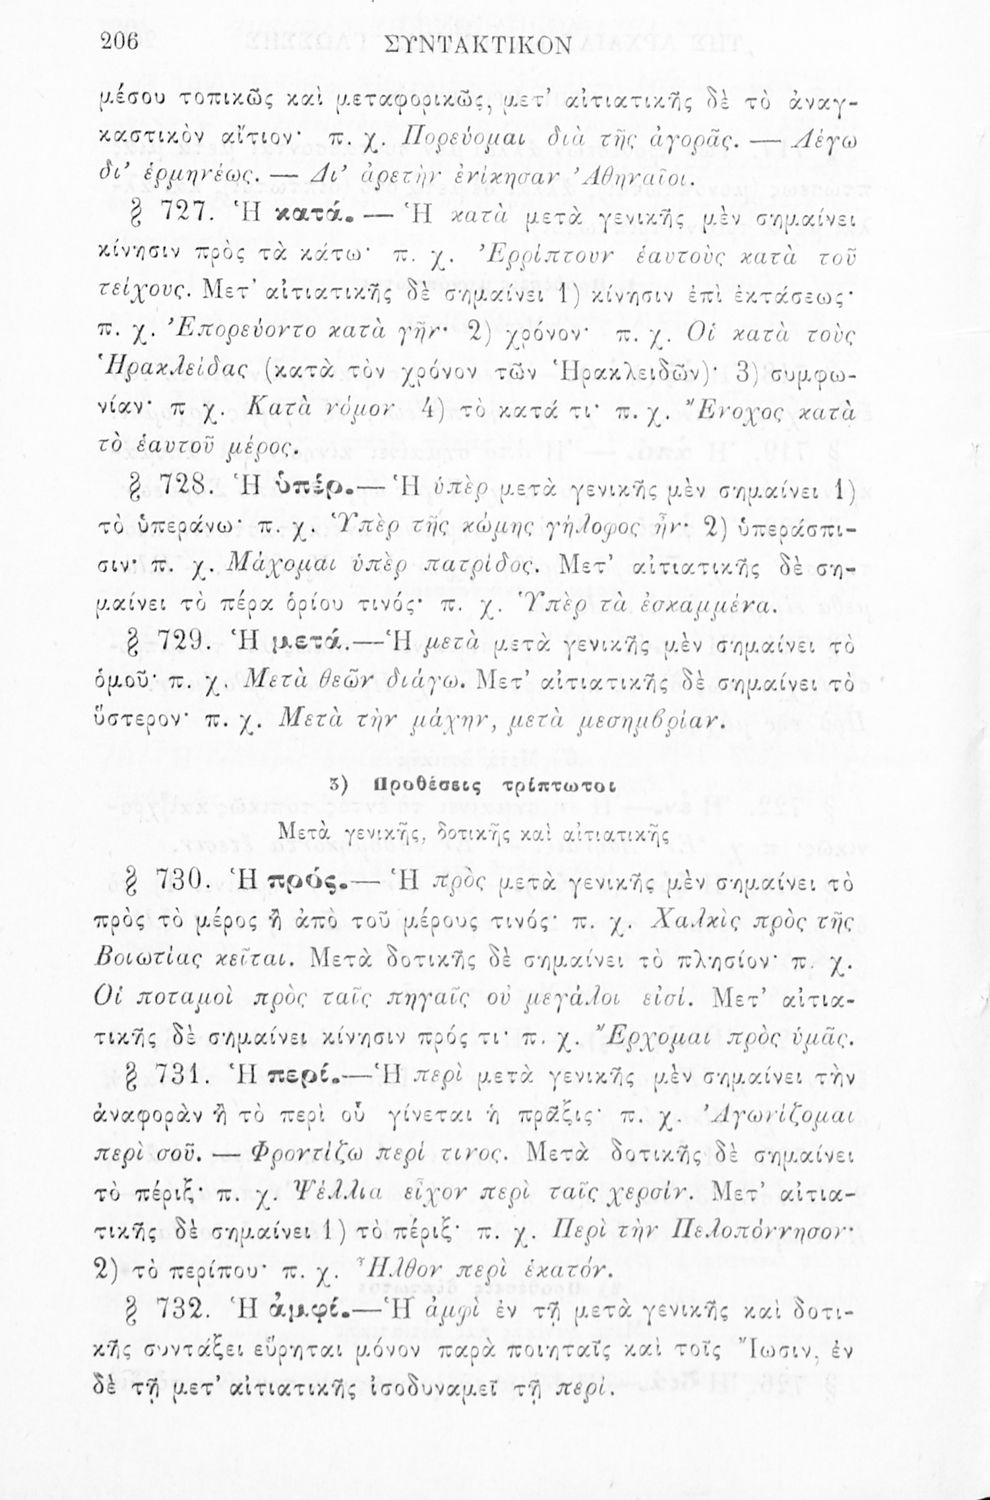 206 ΣΥΝΤΑΚΤΙΚΟΝ
μέσου τοπικῶς καὶ μεταφορικῶς, μετ’ αἰτιατικῆς δὲ τὸ ἀναγ-
καστικὸν αἴτιον· π. χ. Πορεύομαι διὰ τῆς ἀγορᾶς. — Λέγω
δι’ ἑρμηνέως. — Δι’ ἀρετὴν ἐνίκησαν Ἀθηναῖοι.
§ 727. Ἡ κατά. — Ἡ κατὰ μετὰ γενικῆς μὲν σημαίνει
κίνησιν πρὸς τὰ κάτω· π. χ. Ἐρρίπτουν ἑαυτοὺς κατὰ τοῦ
τείχους. Μετ’ αἰτιατικῆς δὲ σημαίνει 1) κίνησιν ἐπὶ ἐκτάσεως·
π. χ. Ἐπορεύοντο κατὰ γῆν· 2) χρόνον· π. χ. Οἱ κατὰ τοὺς
Ἡρακλείδας (κατὰ τὸν χρόνον τῶν Ἡρακλειδῶν)· 3) συμφω-
νίαν· π χ. Κατὰ νόμον 4) τὸ κατά τι· π. χ. Ἔνοχος κατὰ
τὸ ἑαυτοῦ μέρος.
§ 728. Ἡ ὑπέρ. — Ἡ ὑπὲρ μετὰ γενικῆς μὲν σημαίνει 1)
τὸ ὑπεράνω· π. χ. Ὑπὲρ τῆς κώμης γήλοφος ἦν· 2) ὑπεράσπι-
σιν· π. χ. Μάχομαι ὑπὲρ πατρίδος. Μετ’ αἰτιατικῆς δὲ ση-
μαίνει τὸ πέρα ὁρίου τινός· π. χ. Ὑπὲρ τὰ ἐσκαμμένα.
§ 729. Ἡ μετά. — Ἡ μετὰ μετὰ γενικῆς μὲν σημαίνει τὸ
ὁμοῦ· π. χ. Μετὰ θεῶν διάγω. Μετ’ αἰτιατικῆς δὲ σημαίνει τὸ
ὕστερον· π. χ. Μετὰ τὴν μάχην, μετὰ μεσημβρίαν.
3) Προθέσεις τρίπτωτοι
Μετὰ γενικῆς, δοτικῆς καὶ αἰτιατικῆς
§ 730. Ἡ πρός. — Ἡ πρὸς μετὰ γενικῆς μὲν σημαίνει τὸ
πρὸς τὸ μέρος ἢ ἀπὸ τοῦ μέρους τινός· π. χ. Χαλκὶς πρὸς τῆς
Βοιωτίας κεῖται. Μετὰ δοτικῆς δὲ σημαίνει τὸ πλησίον· π. χ.
Οἱ ποταμοὶ πρὸς ταῖς πηγαῖς οὐ μεγάλοι εἰσί. Μετ’ αἰτια-
τικῆς δὲ σημαίνει κίνησιν πρός τι· π. χ. Ἔρχομαι πρὸς ὑμᾶς.
§ 731. Ἡ περί. — Ἡ περὶ μετὰ γενικῆς μὲν σημαίνει τὴν
ἀναφορὰν ἢ τὸ περὶ οὗ γίνεται ἡ πρᾶξις· π. χ. Ἀγωνίζομαι
περὶ σοῦ. — Φροντίζω περί τινος. Μετὰ δοτικῆς δὲ σημαίνει
τὸ πέριξ· π. χ. Ψέλλια εἶχον περὶ ταῖς χερσίν. Μετ’ αἰτια-
τικῆς δὲ σημαίνει 1) τὸ πέριξ· π. χ. Περὶ τὴν Πελοπόννησον·
2) τὸ περίπου· π. χ. Ἦλθον περὶ ἑκατόν.
§ 732. Ἡ ἀμφί. — Ἡ ἀμφὶ ἐν τῇ μετὰ γενικῆς καὶ δοτι-
κῆς συντάξει εὕρηται μόνον παρὰ ποιηταῖς καὶ τοῖς Ἴωσιν, ἐν
δὲ τῇ μετ’ αἰτιατικῆς ἰσοδυναμεῖ τῇ περί.